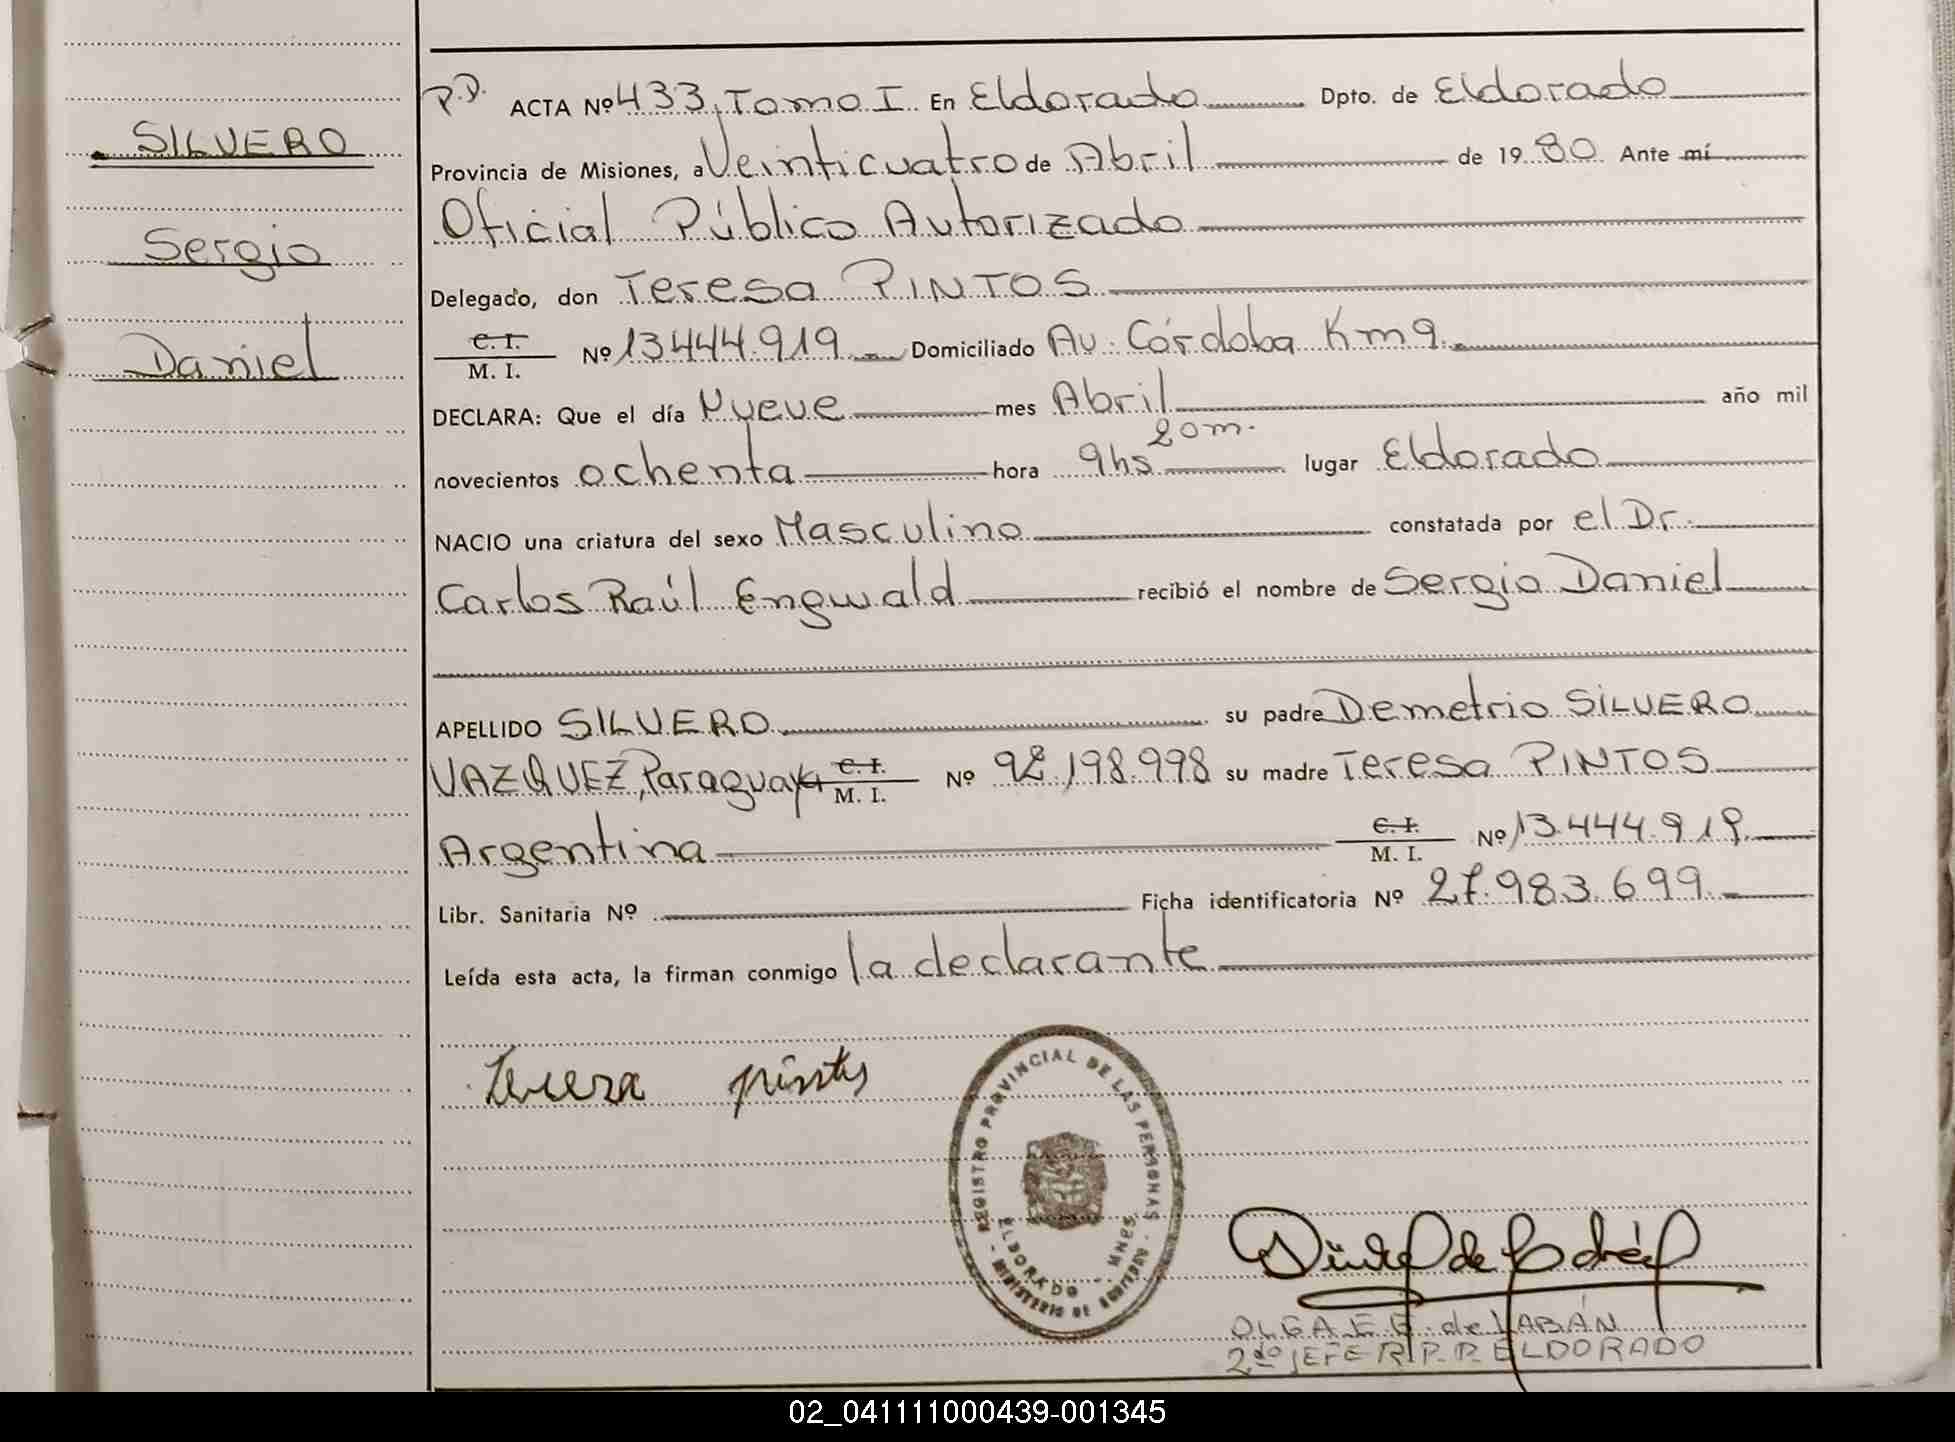 SILVERO
Sergio
Daniel
P.P. ACTA Nº 433, Tomo I En Eldorado Dpto. de Eldorado
Provincia de Misiones, a Veinticuatro de Abril de 1980 Ante mí
Oficial Público Autorizado
Delegado, don Teresa PINTOS
C. I. / M. I. Nº 13.444.919 Domiciliado Av. Córdoba Km 9
DECLARA: Que el día Nueve mes Abril año mil
novecientos ochenta hora 9hs 20m. lugar Eldorado
NACIO una criatura del sexo Masculino constatada por el Dr.
Carlos Raúl Engwald recibió el nombre de Sergio Daniel
APELLIDO SILVERO su padre Demetrio SILVERO
VAZQUEZ, Paraguaya C. I. / M. I. Nº 92.198.998 su madre Teresa PINTOS
Argentina C. I. / M. I. Nº 13.444.919
Libr. Sanitaria Nº Ficha identificatoria Nº 27.983.699
Leída esta acta, la firman conmigo la declarante
Teresa pintos
REGISTRO PROVINCIAL DE LAS PERSONAS
ELDORADO - MNES
MINISTERIO DE GOBIERNO
OLGA E. de LABÁN
2do JEFE R.P.P. ELDORADO
02_041111000439-001345